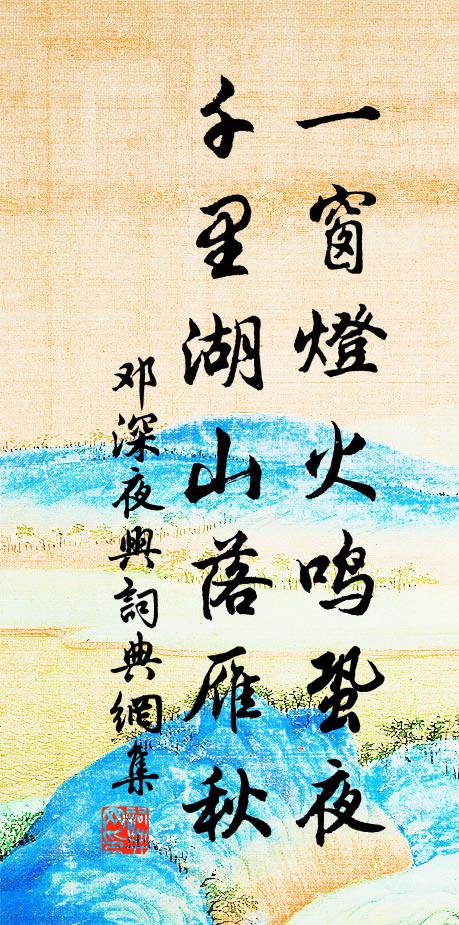 一窗燈火鳴蛩夜
千里湖山落雁秋
邓深夜興詞典網集